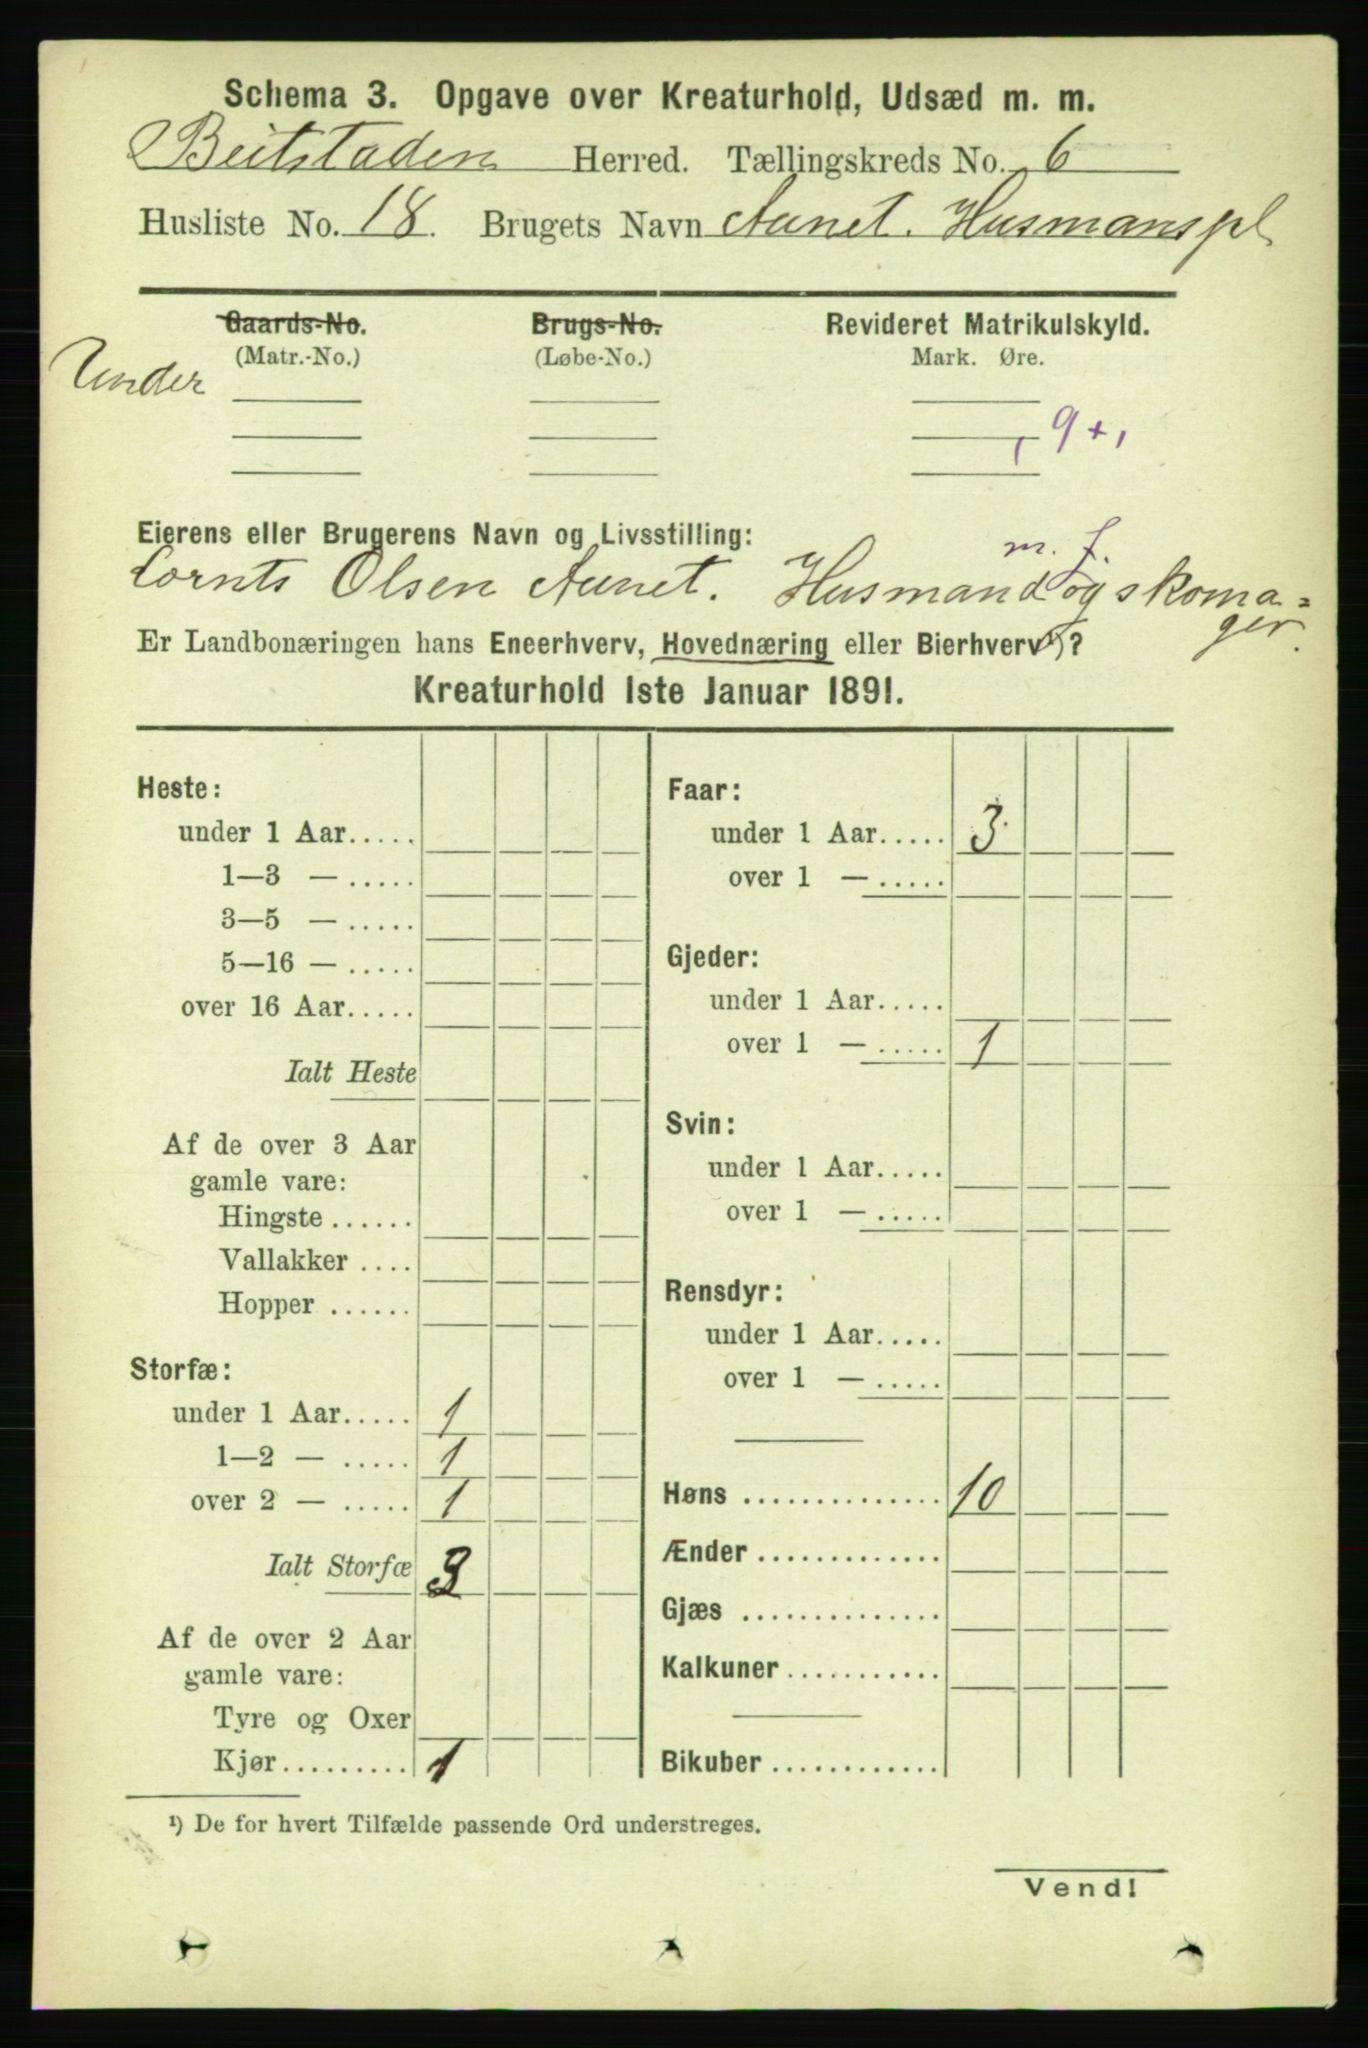 Schema 3. Opgave over Kreaturhold, Udsæd m. m.
Beitstaden Herred. Tællingskreds No. 6
Husliste No. 18. Brugets Navn Aunet. Husmanspl
Gaards-No. Brugs-No. Revideret Matrikulskyld.
(Matr.-No.) (Løbe-No.) Mark. Øre.
Under
, 9 +,
Eierens eller Brugerens Navn og Livsstilling:
m. j.
Cornts Olsen Aunet. Husmand og skoma=
ger.
Er Landbonæringen hans Eneerhverv, Hovednæring eller Bierhverv¹)?
Kreaturhold 1ste Januar 1891.
Heste:
under 1 Aar.....
1—3 — .....
3—5 — .....
5—16 — .....
over 16 Aar.....
Ialt Heste
Af de over 3 Aar
gamle vare:
Hingste ......
Vallakker ....
Hopper ......
Storfæ:
under 1 Aar..... 1
1—2 — ..... 1
over 2 — ..... 1
Ialt Storfæ 3
Af de over 2 Aar
gamle vare:
Tyre og Oxer
Kjør......... 1
Faar:
under 1 Aar..... 3
over 1 — .....
Gjeder:
under 1 Aar.....
over 1 — ..... 1
Svin:
under 1 Aar.....
over 1 — .....
Rensdyr:
under 1 Aar.....
over 1 — .....
Høns .............. 10
Ænder .............
Gjæs ..............
Kalkuner ...........
Bikuber ............
¹) De for hvert Tilfælde passende Ord understreges.
Vend!